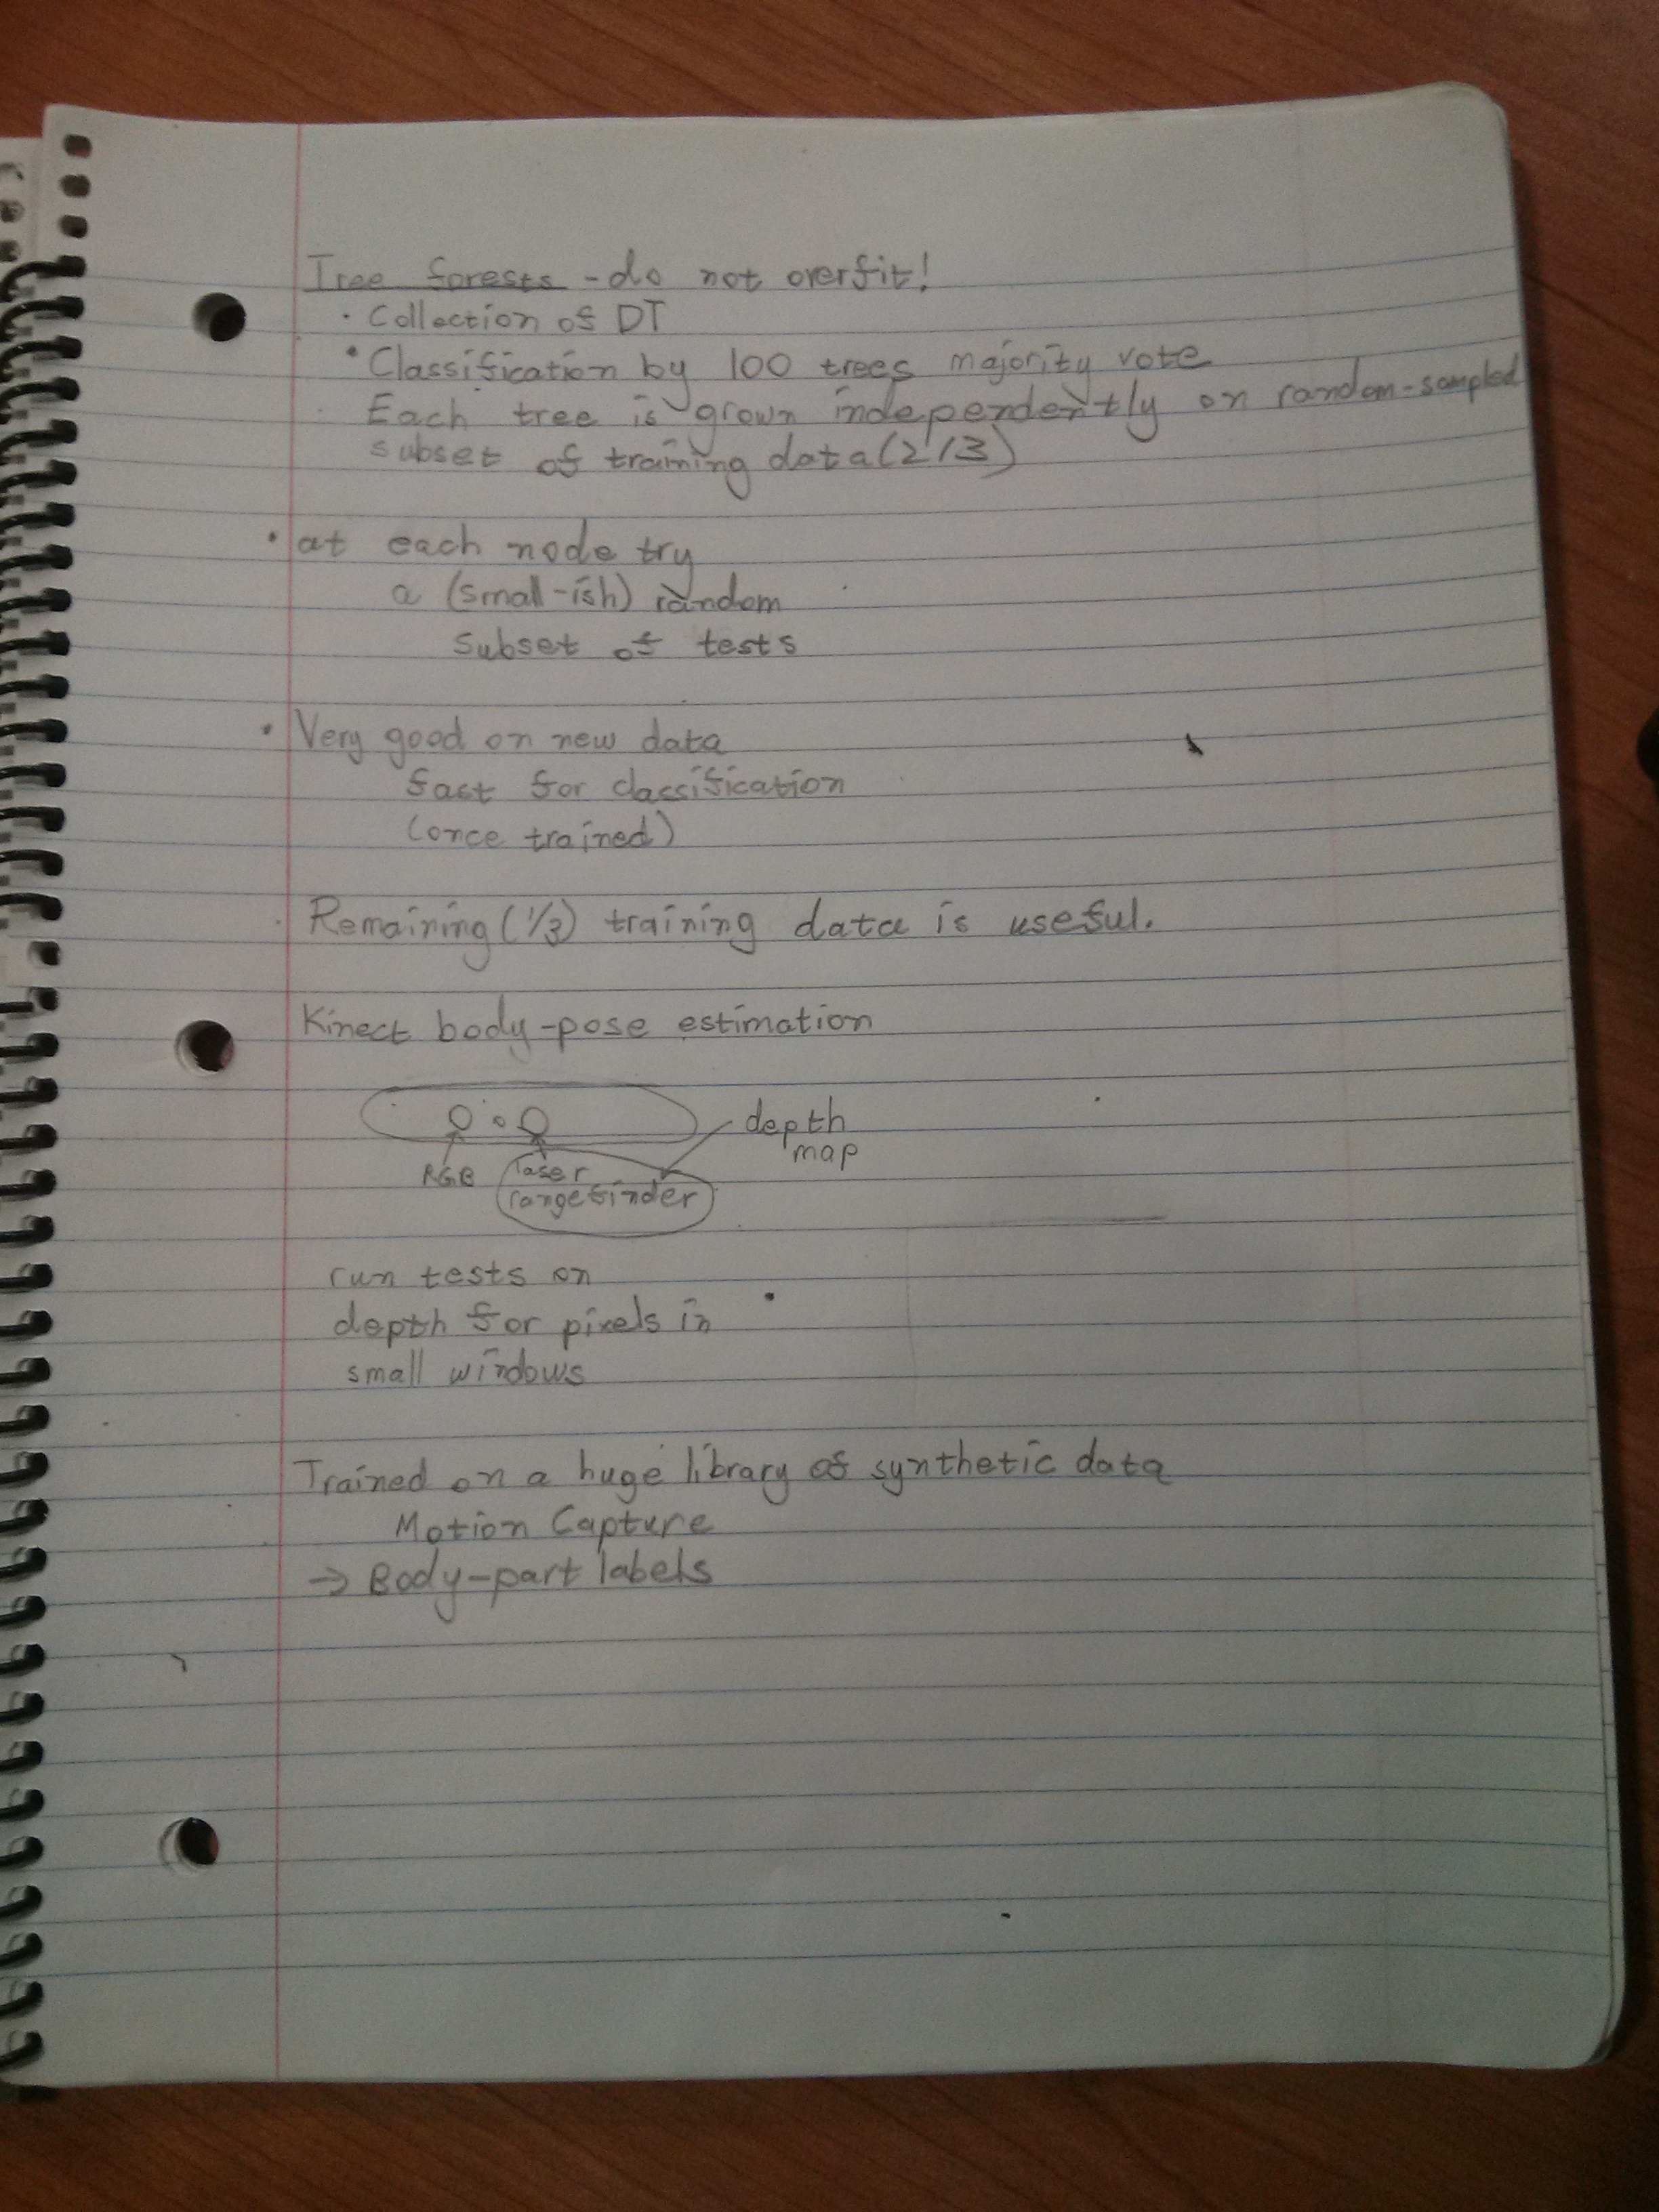 Tree forests - do not overfit!
· Collection of DT
· Classification by 100 trees majority vote
· Each tree is grown independently on random-sampled
subset of training data (2/3)
· at each node try
a (small-ish) random
subset of tests
· Very good on new data
fast for classification
(once trained)
· Remaining (1/3) training data is useful.
Kinect body-pose estimation
depth
map
RGB laser
rangefinder
run tests on
depth for pixels in
small windows
Trained on a huge library of synthetic data
Motion Capture
→ Body-part labels